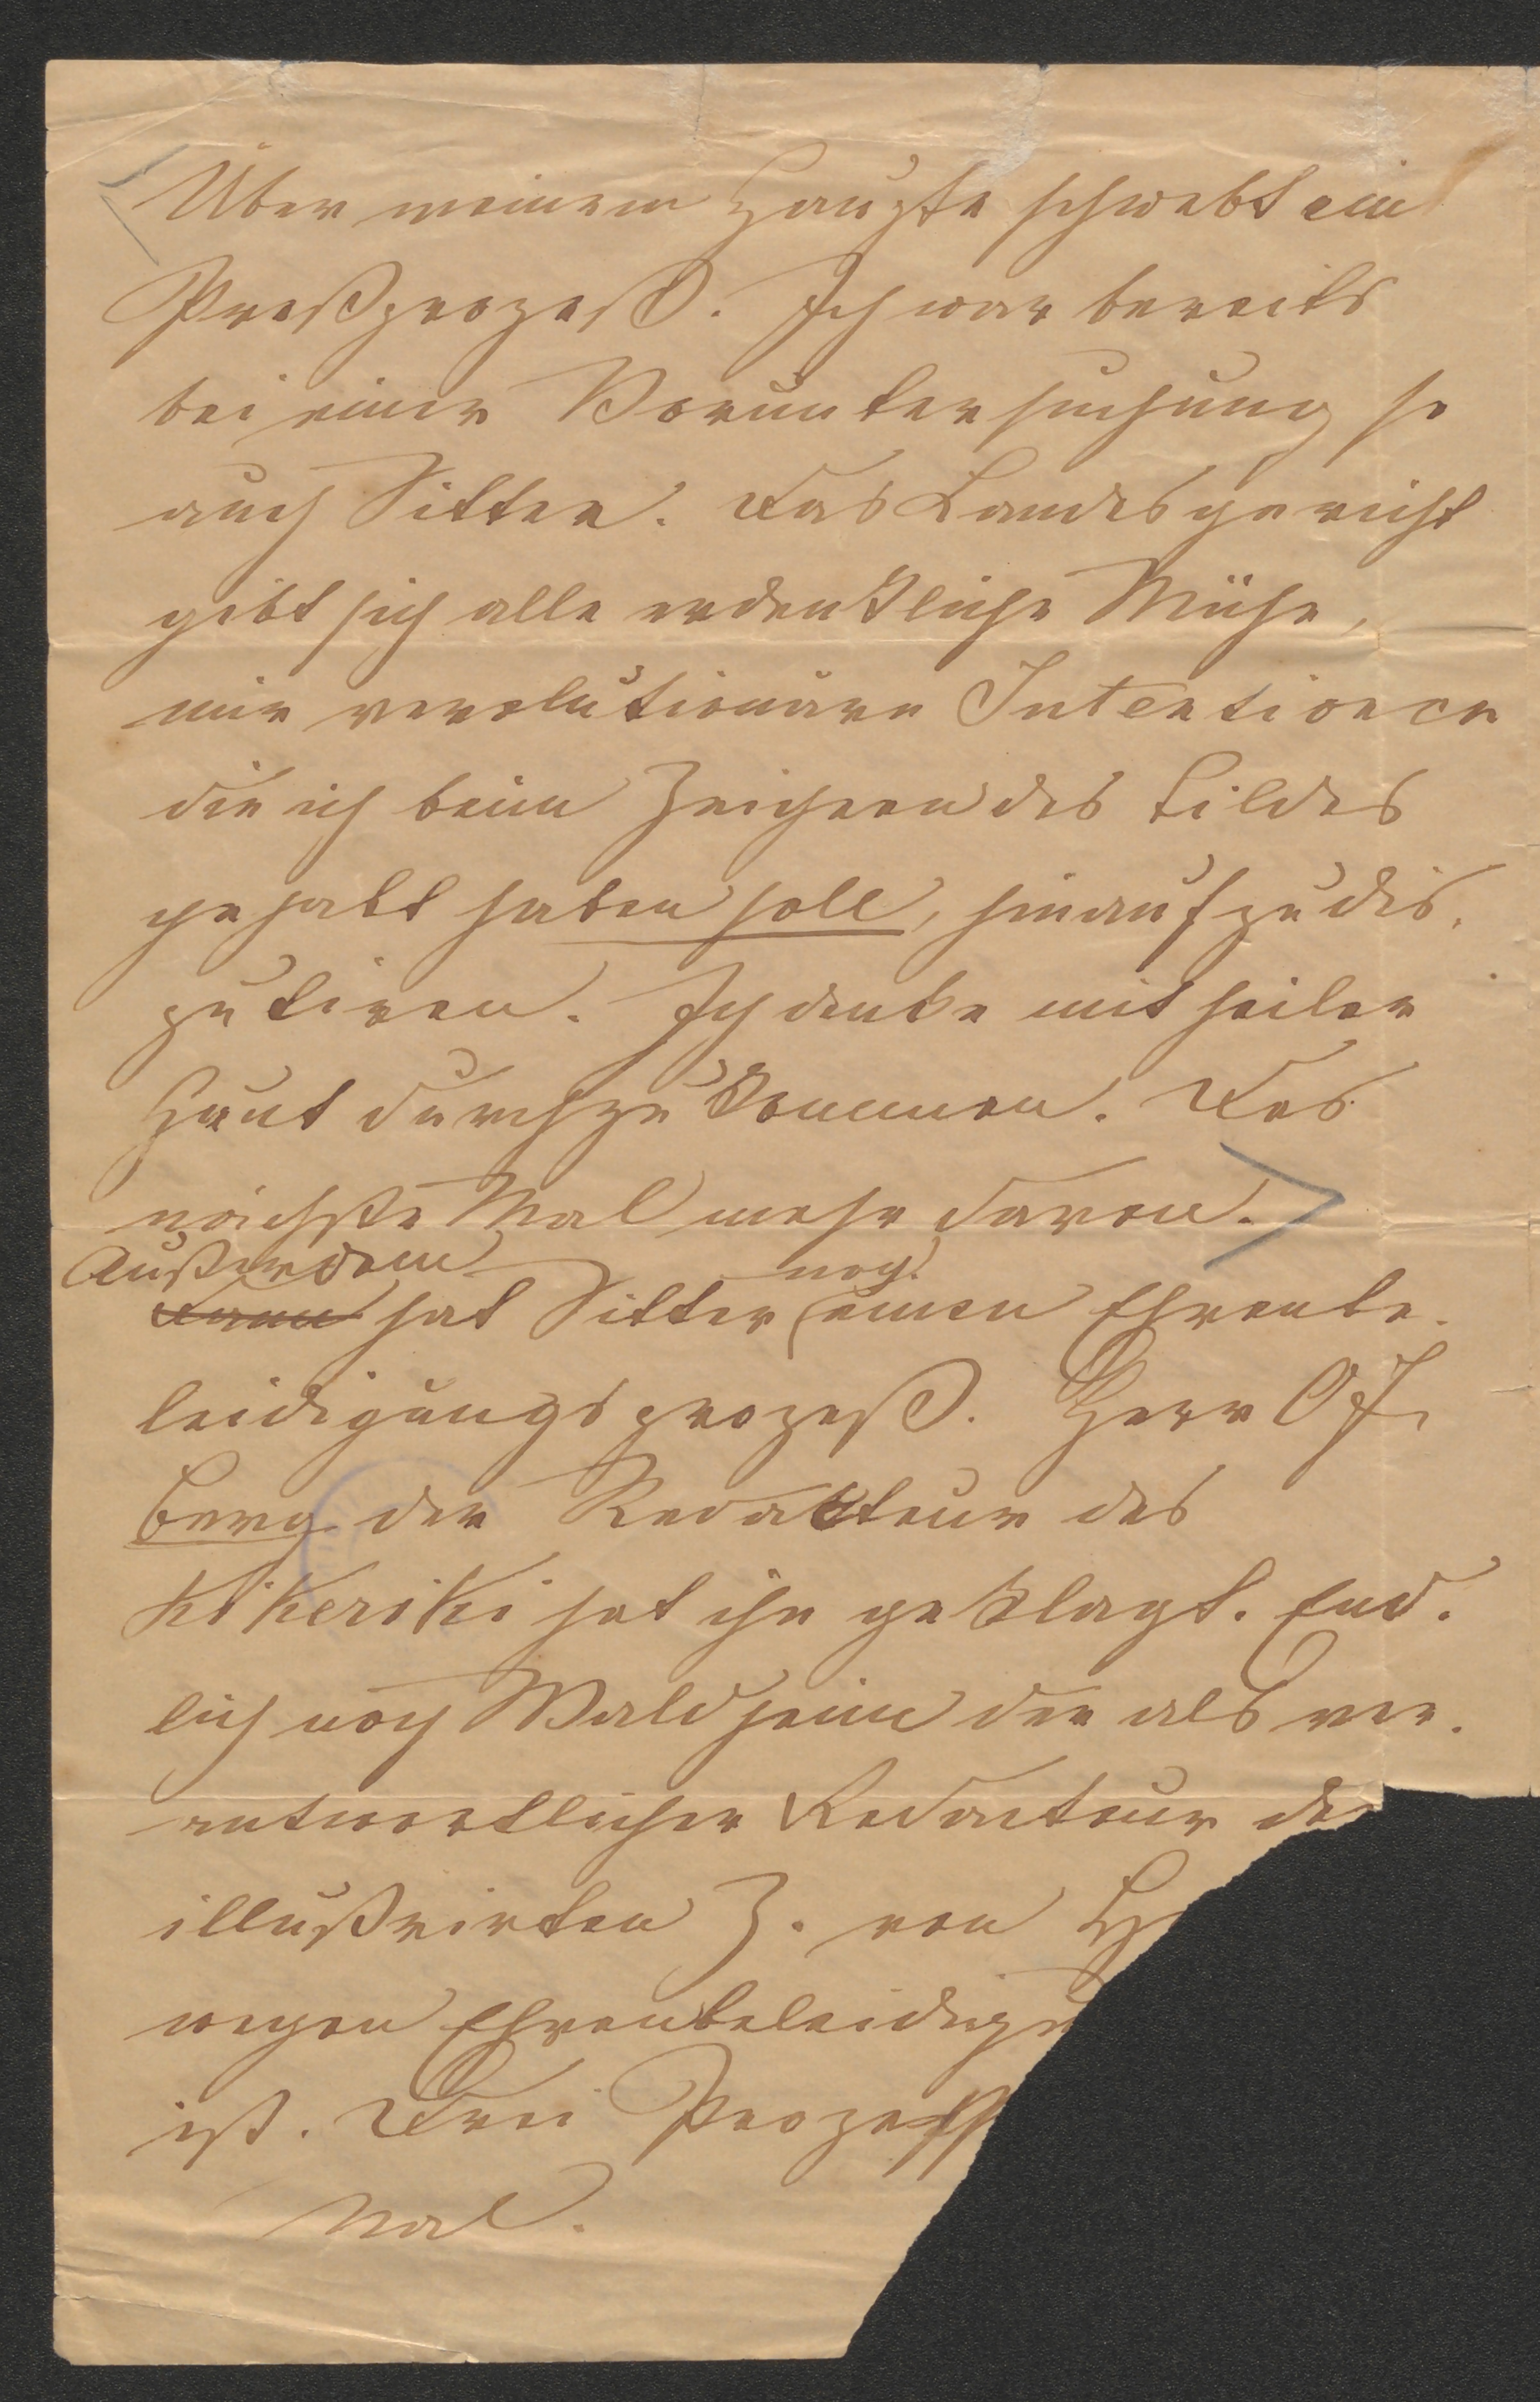 Über meinem Haupte schwebt ein
Preßprozeß. Ich war bereits
bei einer Voruntersuchung so
auch Sitter. Das Landesgericht
gibt sich alle erdenkliche Mühe,
mir revolutionäre Intentionen
die ich beim Zeichnen des Bildes
gehabt haben soll, hinaufzudis-
putiren. Ich denke mit heiler
Haut durchzukommen. Das
nächste Mal mehr davon.
Außerdem noch
Dann hat Sitter einen Ehrenbe-
leidigungsprozeß. Herr OF
Berg der Redakteur des
Kikeriki hat ihn geklagt. End-
lich noch Waldheim der als ver-
antwortlicher Redacteur der
illustrirten Z. von
wegen Ehrenbeleidigu
ist. Drei Prozess
Mal.